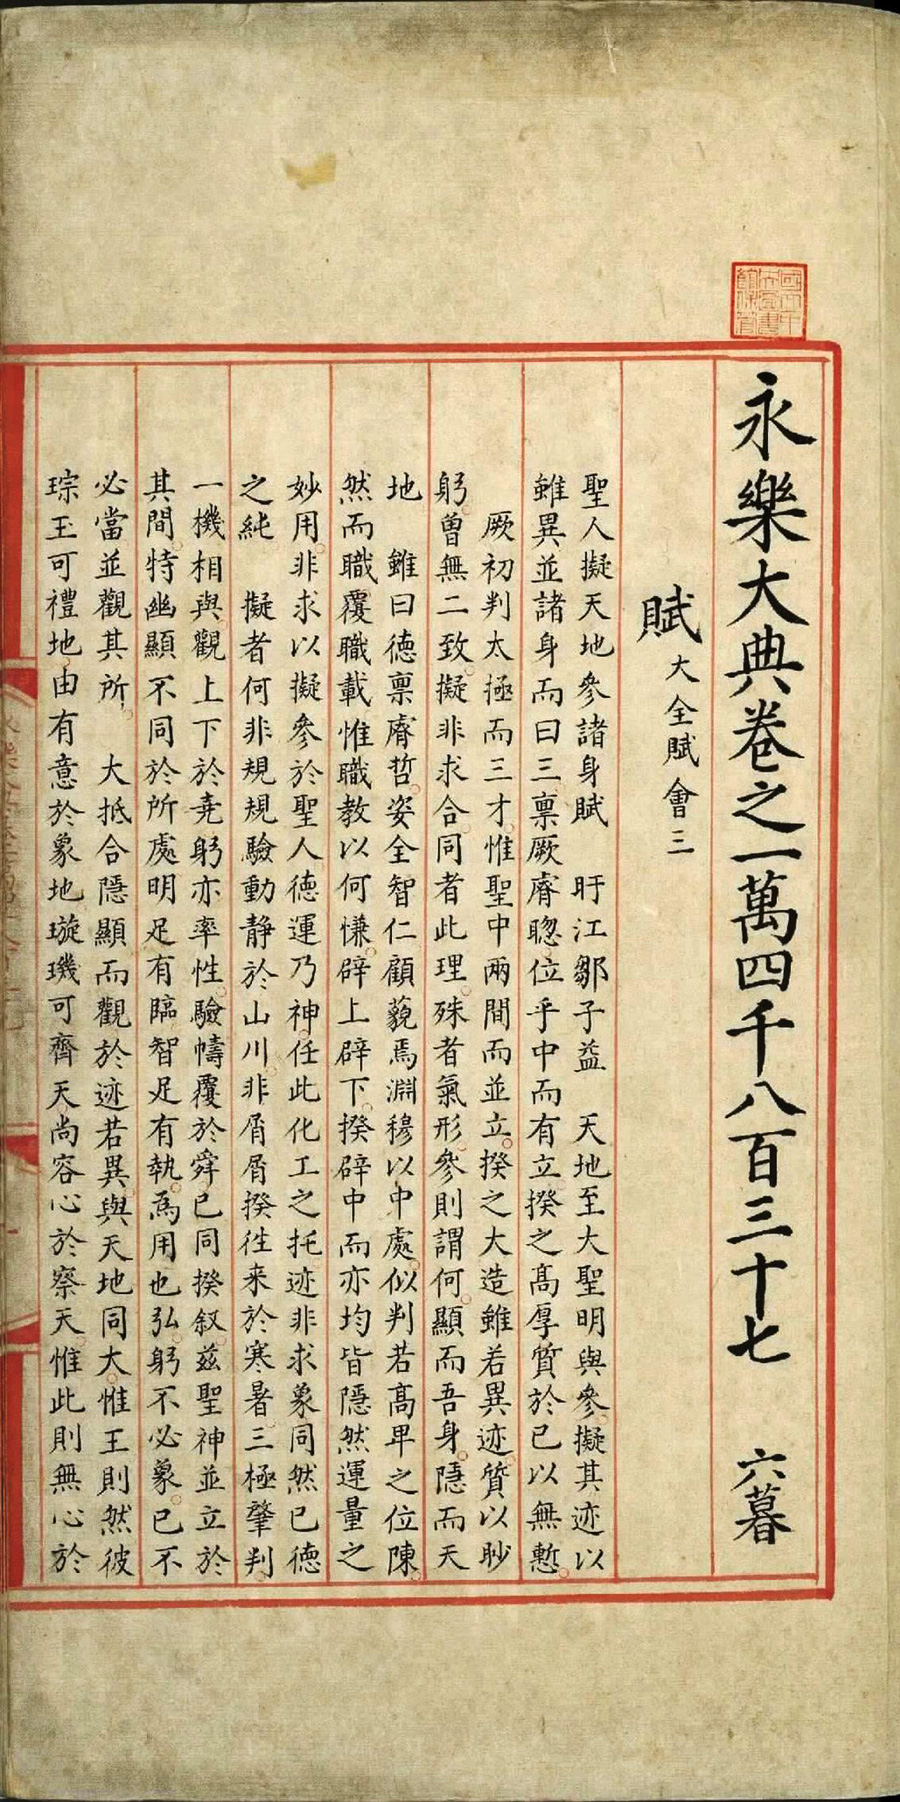 永樂大典卷之一萬四千八百三十七 六暮
賦 大全賦會三
聖人擬天地參諸身賦 盱江鄒子益 天地至大聖明與參擬其迹以
雖異並諸身而曰三稟厥膺聰位乎中而有立揆之高厚質於已以無慙
厥初判太極而三才惟聖中兩間而並立揆之大造雖若異迹質以眇
躬曽無二致擬非求合同者此理殊者氣形參則謂何顯而吾身隱而天
地 雖曰德禀膺哲姿全智仁顧藐焉淵穆以中處似判若髙卑之位陳
然而職覆職載惟職教以何慊辟上辟下揆辟中而亦均皆隱然運量之
妙用非求以擬參於聖人德運乃神任此化工之托迹非求象同然已德
之純 擬者何非規規驗動静於山川非屑屑揆徃来於寒暑三極肇判
一機相與觀上下於尭躬亦率性驗幬覆於舜已同揆叙兹聖神並立於
其間特幽顯不同於所處明足有臨智足有執爲用也弘躬不必象已不
必當並觀其所 大抵合隱顯而觀於迹若異與天地同大惟王則然彼
琮玉可禮地由有意於象地璇璣可齊天尚容心於察天惟此則無心於